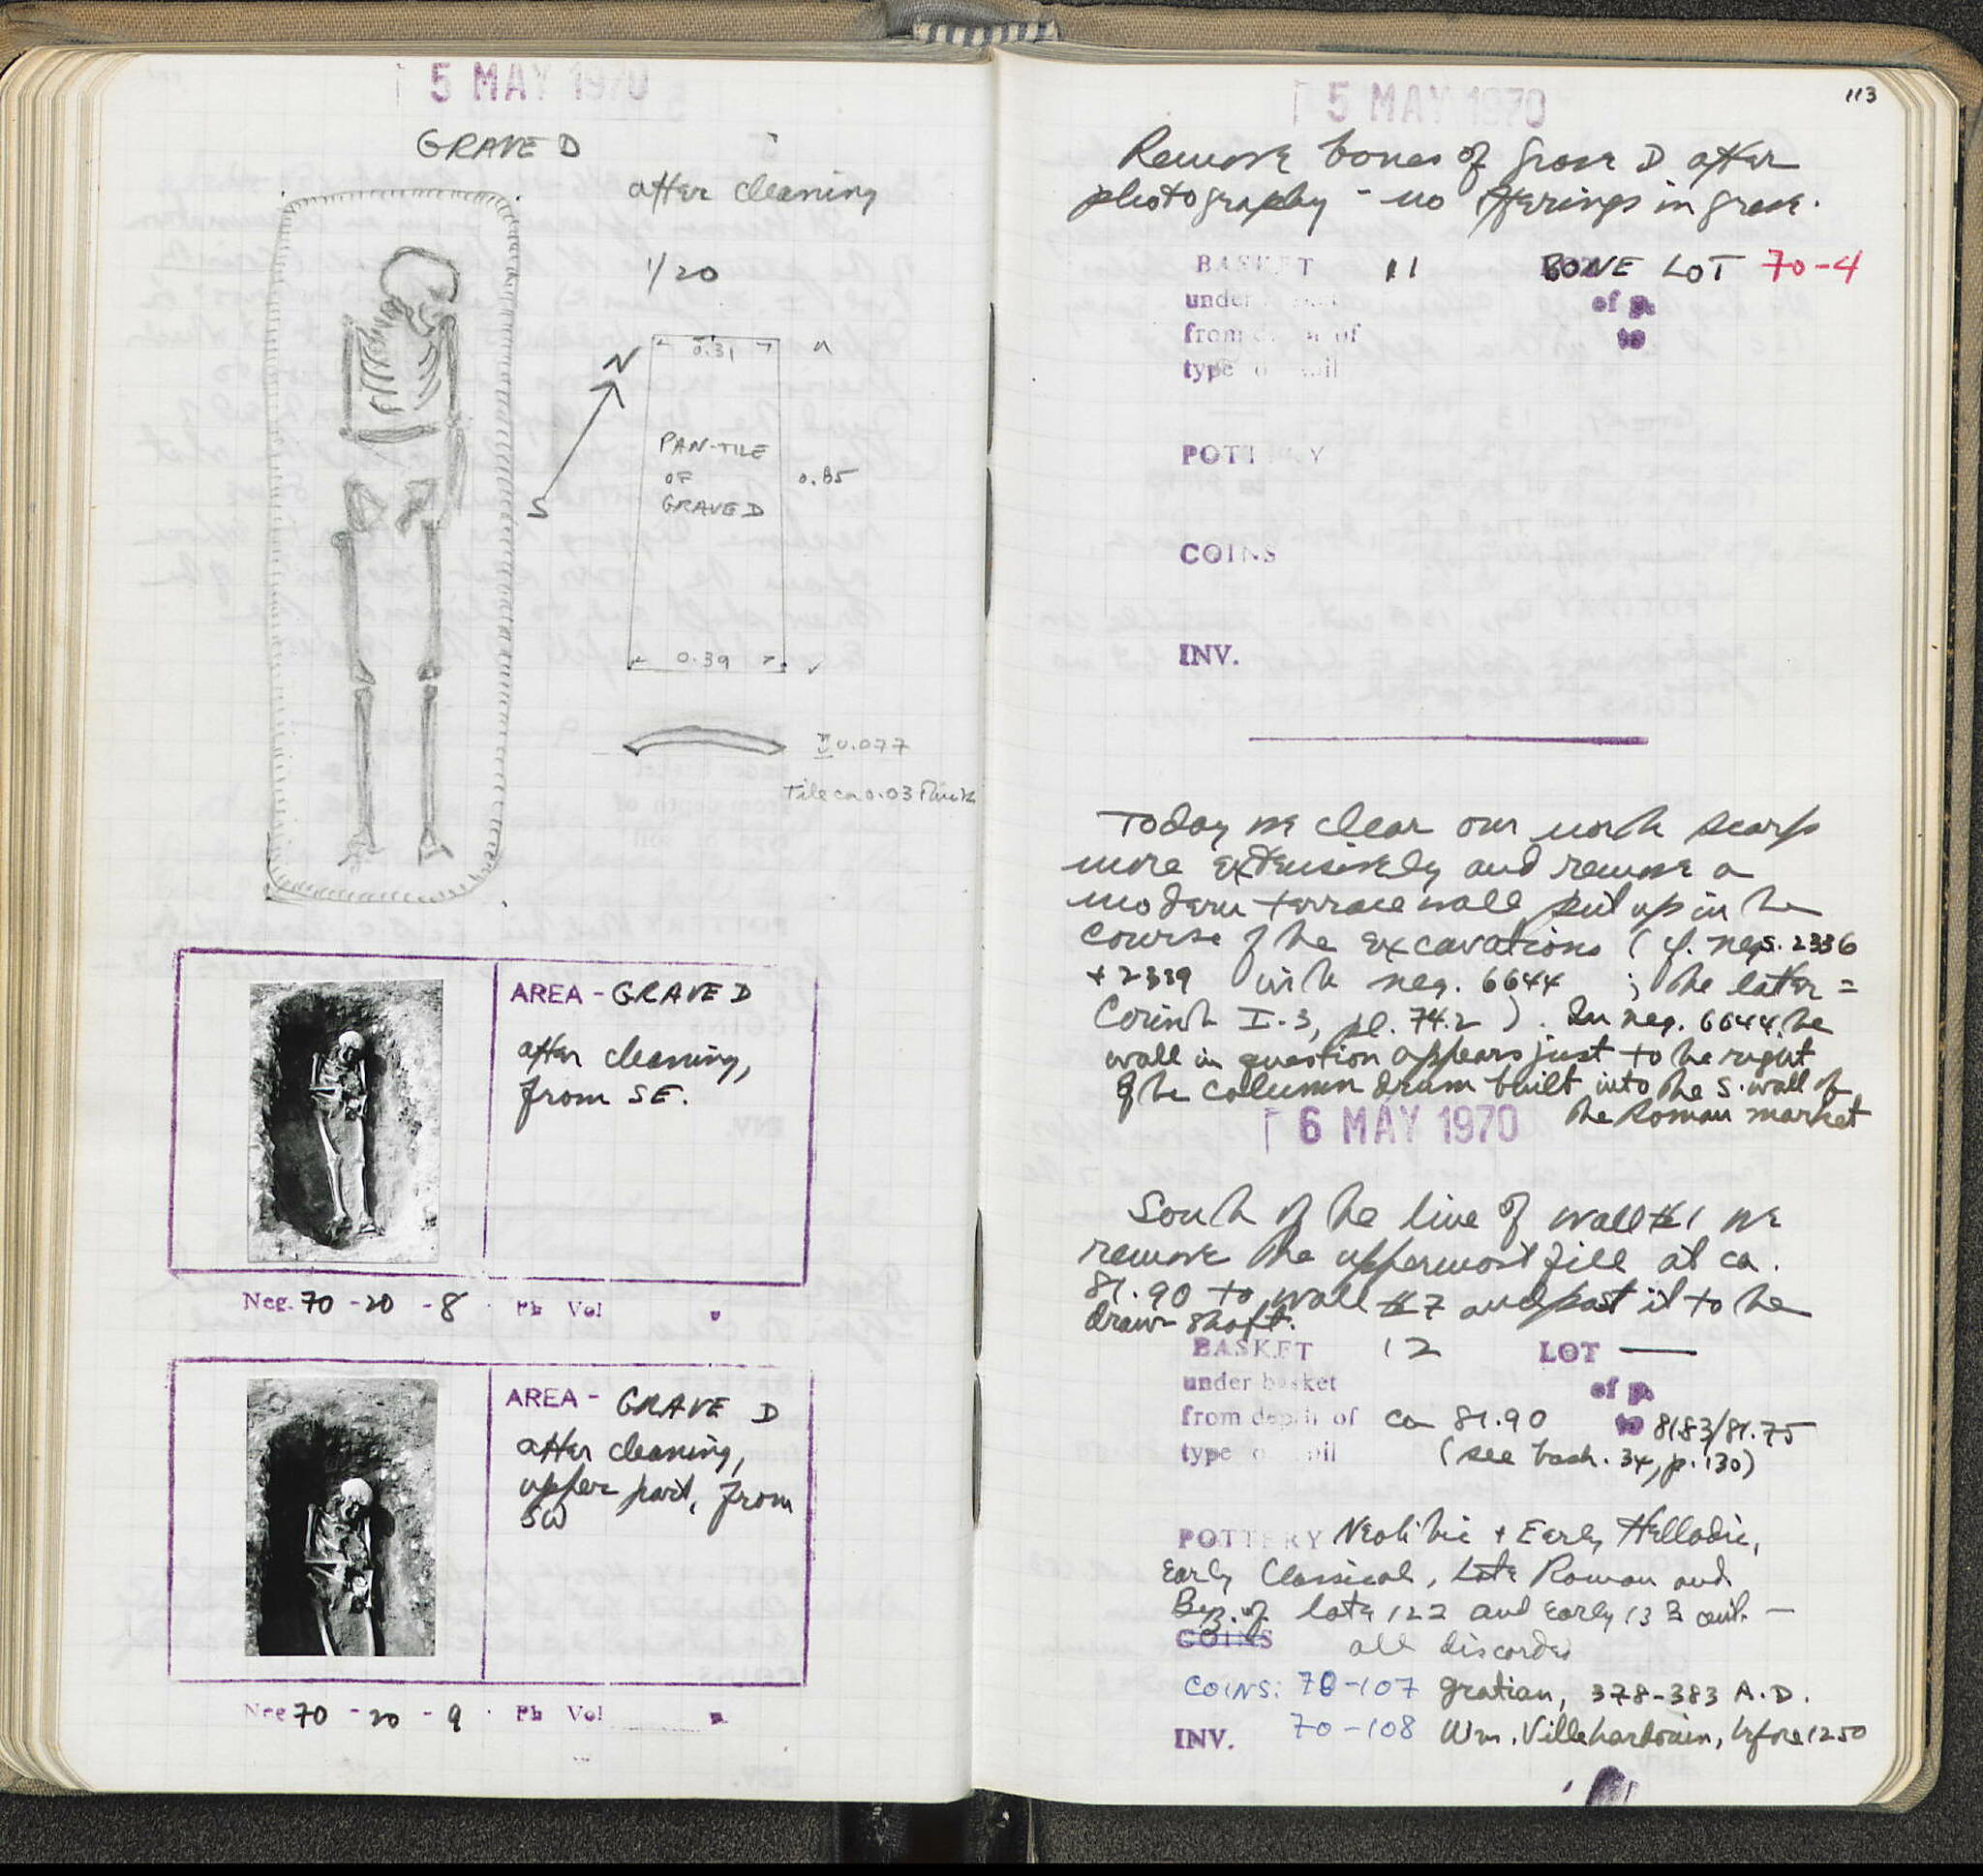 5 MAY 1970
GRAVE D
after cleaning
1/20
N
S
0.31
PAN-TILE
OF
GRAVE D
0.85
0.39
0.077
Tile ca 0.03 thick
AREA - GRAVE D
after cleaning,
from SE.
Neg. 70 - 20 - 8 Pb Vol p
AREA - GRAVE D
after cleaning,
upper part, from
SW
Neg 70 - 20 - 9 Pb Vol p
113
5 MAY 1970
Remove bones of grave D after
photography - no offerings in grave.
BASKET 11 BONE LOT 70-4
under basket of p.
from depth of to
type of soil
POTTERY
COINS
INV.
Today we clear our north scarp
more extensively and remove a
modern terrace wall put up in the
course of the excavations (cf. negs. 2336
+ 2339 with neg. 6644 ; the later =
Corinth I.3, pl. 74.2). In neg. 6644 the
wall in question appears just to the right
of the column drum built into the S. wall of
the Roman market
6 MAY 1970
South of the line of wall #1 we
remove the uppermost fill at ca.
81.90 to wall #7 and past it to the
draw shaft.
BASKET 12 LOT —
under basket of p.
from depth of ca 81.90 to 81.83/81.75
type of soil (see bask. 34, p. 130)
POTTERY Neolithic + Early Helladic,
Early Classical, Late Roman and
Byz. of late 12 and early 13 cent. —
COINS all discarded
COINS: 70-107 Gratian, 378-383 A.D.
INV. 70-108 Wm. Villehardouin, before 1250